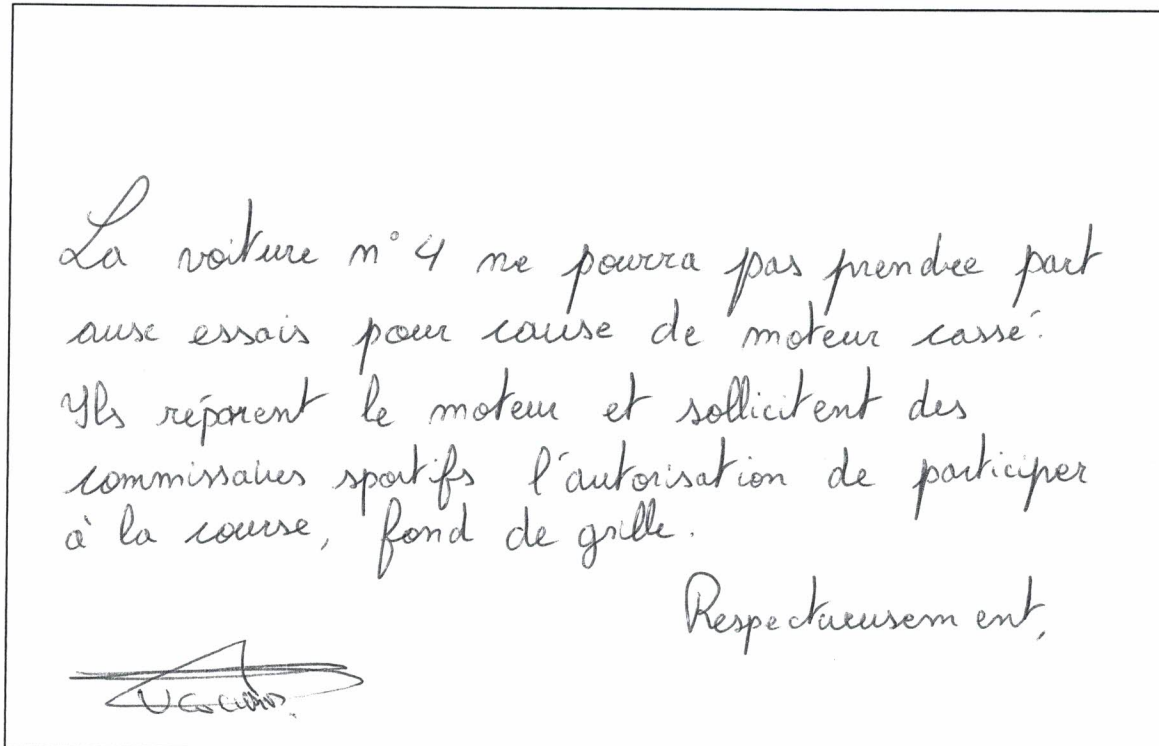 La voiture n° 4 ne pourra pas prendre part
aux essais pour cause de moteur cassé.
Ils réparent le moteur et sollicitent des
commissaires sportifs l'autorisation de participer
à la course, fond de grille.
Respectueusement,